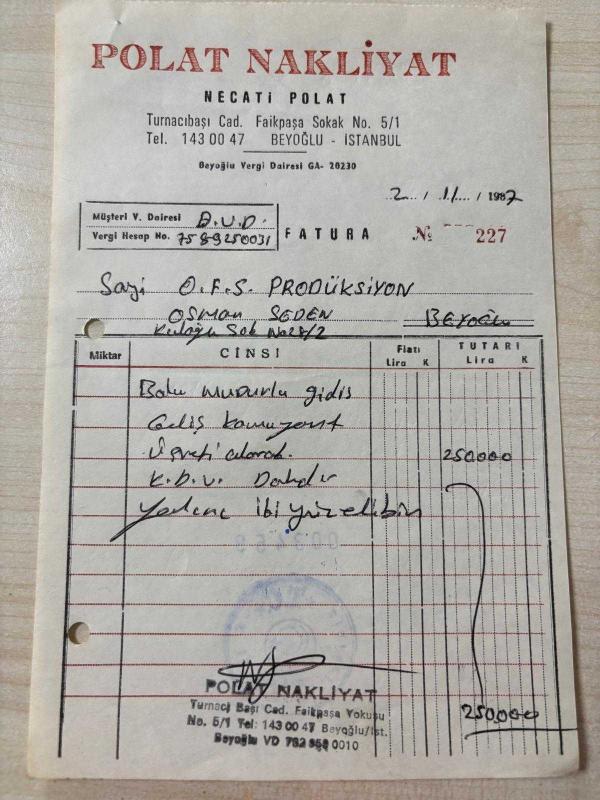 POLAT NAKLİYAT
NECATİ POLAT
Turnacıbaşı Cad. Faikpaşa Sokak No. 5/1
Tel. 143 00 47 BEYOĞLU - İSTANBUL
Beyoğlu Vergi Dairesi GA- 20230
2 / 11 / 1987
Müşteri V. Dairesi B.V.D.
Vergi Hesap No. 7589250031
FATURA
№ 227
Sayi O.F.S. PRODÜKSİYON
OSMAN SEDEN BEYOĞLU
Kuloğlu Sok No 28/2
Miktar CİNSİ Fiatı TUTARI
Lira K Lira K
Bolu mudurlu gidiş
Geliş kamyonet
Ücreti olarak 250.000
K.D.V. Dahildir
Yalnız iki yüz elli bin
POLAT NAKLİYAT
Turnacı Başı Cad. Faikpaşa Yokuşu
No. 5/1 Tel: 143 00 47 Beyoğlu/İst.
Beyoğlu VD 732 0010
250.000